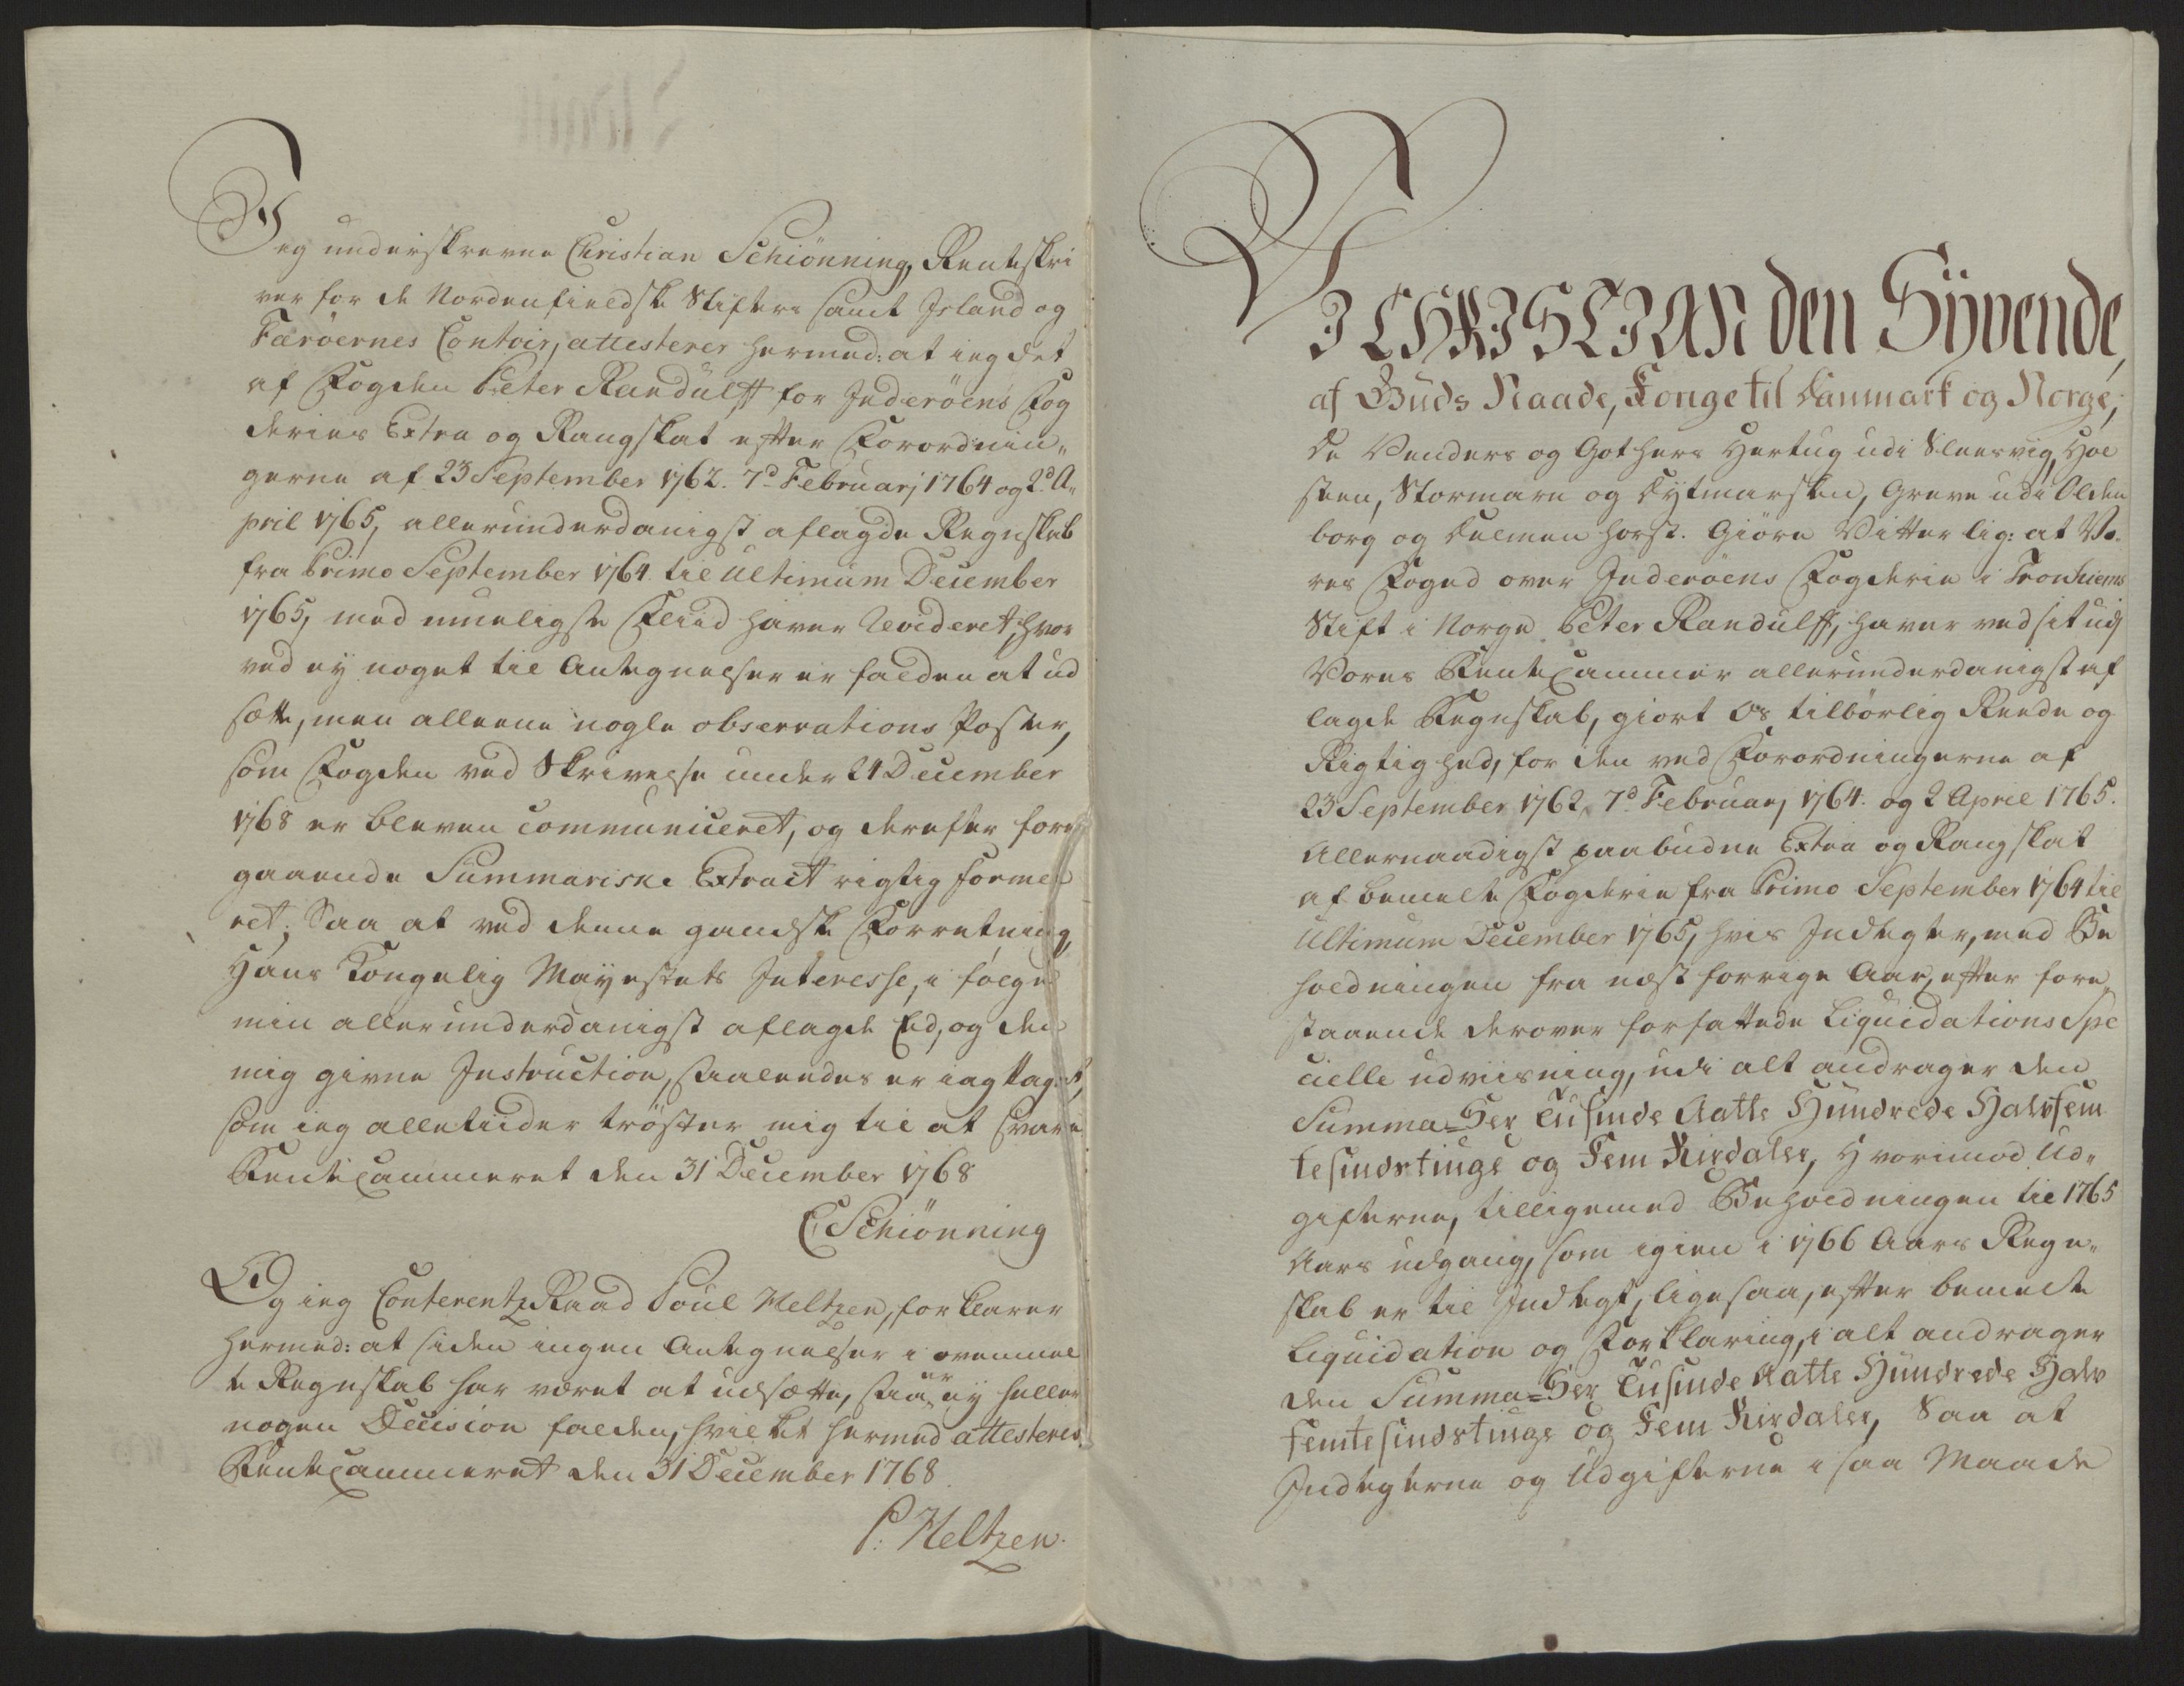 Jeg underskrevne Christian Schiönning, Renteskri
ver for de Nordenfieldske Stifters samt Jsland og
Færöernes Contoir, attesterer hermed: at jeg det
af Fogden Peter Randulff for Jnderöens Fog
deries Extra og Rangskat efter Forordnin„
gerne af 23 September 1762. 7d Februarj 1764 og 2d A„
pril 1765, allerunderdanigst aflagde Regnskab
fra Primo September 1764. til Ultimum December
1765, med mueligste Fliid haver Revideret, hvor
ved ej noget til Antegnelser er falden at ud
sætte, men alleene nogle observations Poster,
som Fogden ved Skrivelse under 24 December
1768 er bleven communiceret, og derefter fore
gaaende Summariske Extract rigtig forme
ret; Saa at ved denne gandske Forretning,
Hans Kongelig Mayestets Jnteresse, i følge
min allerunderdanigst aflagde Eed, og den
mig givne Jnstruction, saaleedes er iagttaget,
som jeg alletiider tröster mig til at svare
RenteCammeret den 31 December 1768
C Schiönning
Og jeg Conferentz Raad Poul Heltzen, forklarer
hermed: at siden ingen Antegnelser i ovenmel
te Regnskab har været at udsætte, saa er ej heller
nogen Decision falden, hvilket hermed attesteres
RenteCammeret den 31 December 1768.
P. Heltzen.
VJ CHRJSTJAN den Syvende,
af Guds Naade, Konge til Danmark og Norge,
de Venders og Gothers Hertug udi Sleesvig, Hol
steen, Stormarn og Dytmarsken, Greve udi Olden
borg og Delmenhorst. Giöre Vitterlig: at Vo„
res Foged over Jnderöens Fogderie i Tronhiems
Stift i Norge Peter Randulff, haver ved sit udj
Vores RenteCammer allerunderdanigst af
lagde Regnskab, giort Os tilbørlig Reede og
Rigtighed, for den ved Forordningerne af
23 September 1762. 7d Februarj 1764. og 2 April 1765.
Allernaadigst paabudne Extra og Rangskat
af bemelte Fogderie fra Primo September 1764 til
Ultimum December 1765, hvis Jndtegter, med Be
holdningen fra næst forrige Aar, efter fore
staaende derover forfattede Liquidations Spe
cielle udviisning, udi alt andrager den
Summa = Sex Tusinde Aatte Hundrede Halvfem
tesindstiuge og Fem Rixdaler, Hvorimod Ud„
gifterne, tilligemed Beholdningen til 1765
Aars udgang, som igien i 1766 Aars Regn„
skab er til Jndtegt, ligesaa, efter bemelte
Liquidation og Forklaring, i alt andrager
den Summa = Sex Tusinde Aatte Hundrede Halv
femtesindstiuge og Fem Rixdaler, Saa at
Jndtegterne og Udgifterne i saa Maade